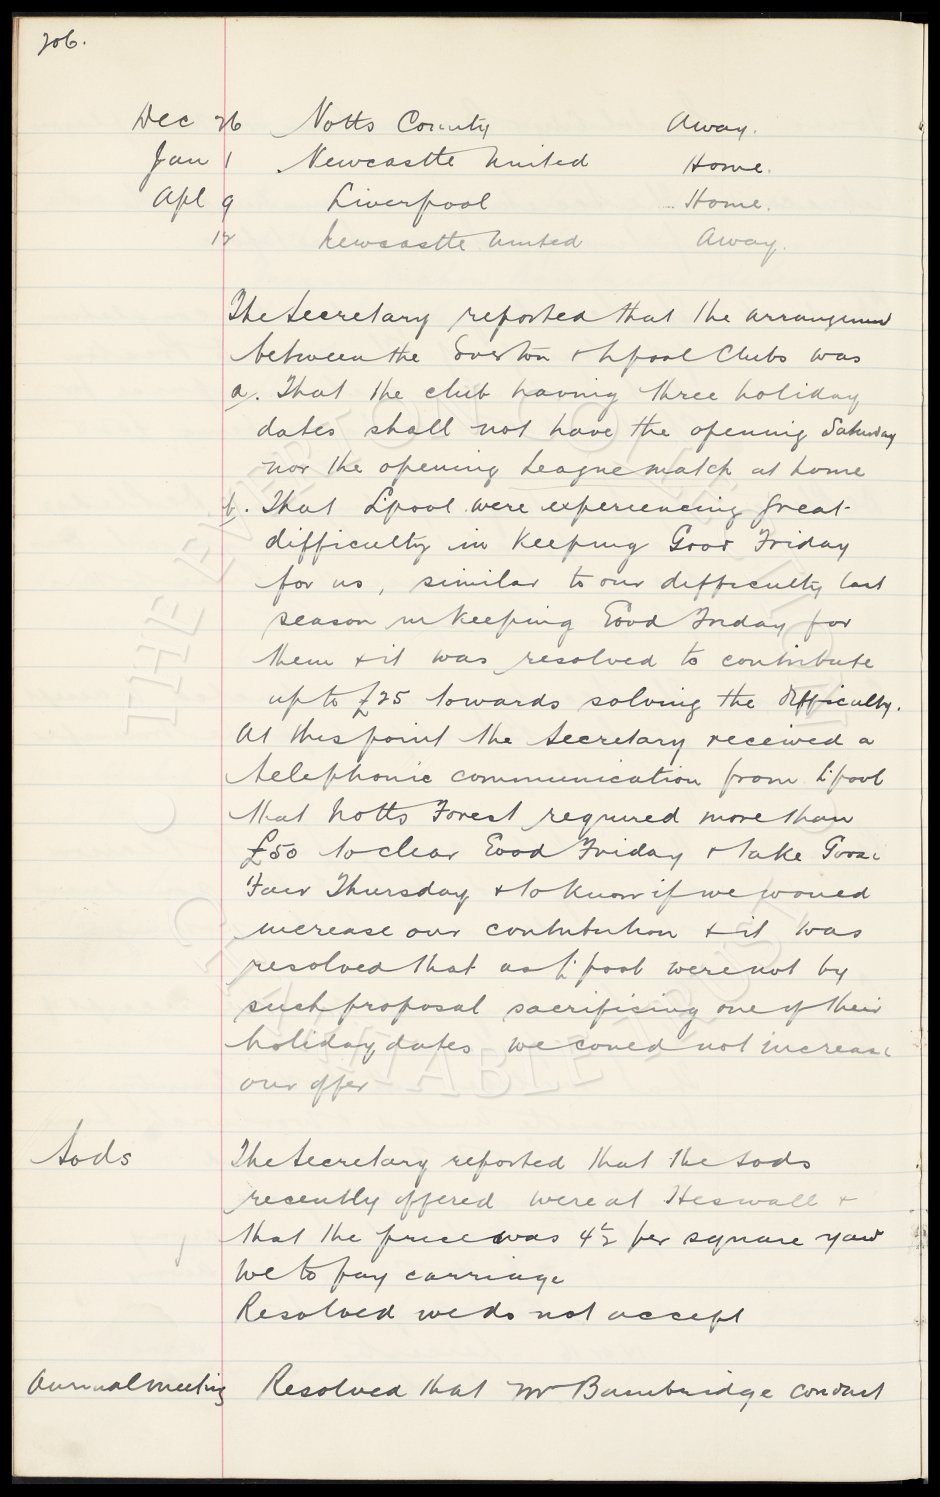 206.
Dec 26 Notts County Away.
Jan 1 Newcastle United Home.
Apl 9 Liverpool Home.
12 Newcastle United Away.
The Secretary reported that the arrangement
between the Everton & Lpool Clubs was
a. That the club having three holiday
dates shall not have the opening Saturday
nor the opening League match at home
b. That L'pool were experiencing great
difficulty in keeping Good Friday
for us, similar to our difficulty last
season in keeping Good Friday for
them & it was resolved to contribute
up to £25 towards solving the difficulty.
At this point the Secretary received a
telephonic communication from L'pool
that Notts Forest required more than
£50 to clear Good Friday & take Goose
Fair Thursday & to know if we would
increase our contribution & it was
resolved that as L'pool were not by
such proposal sacrificing one of their
holiday dates we could not increase
our offer
Sods The Secretary reported that the sods
recently offered were at Heswall &
that the price was 4½ per square yard
We to pay carriage
Resolved we do not accept
Annual meeting Resolved that Mr Bainbridge conduct
THE EVERTON COLLECTION
CHARITABLE TRUST